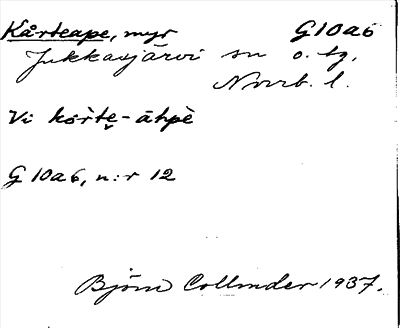 Kårteape, myr G10a6
Jukkasjärvi sn o. tg.
Norrb. l.
Vi kɷ̀rte̮-āhpè
G 10a6, n:r 12
Björn Collinder 1937.